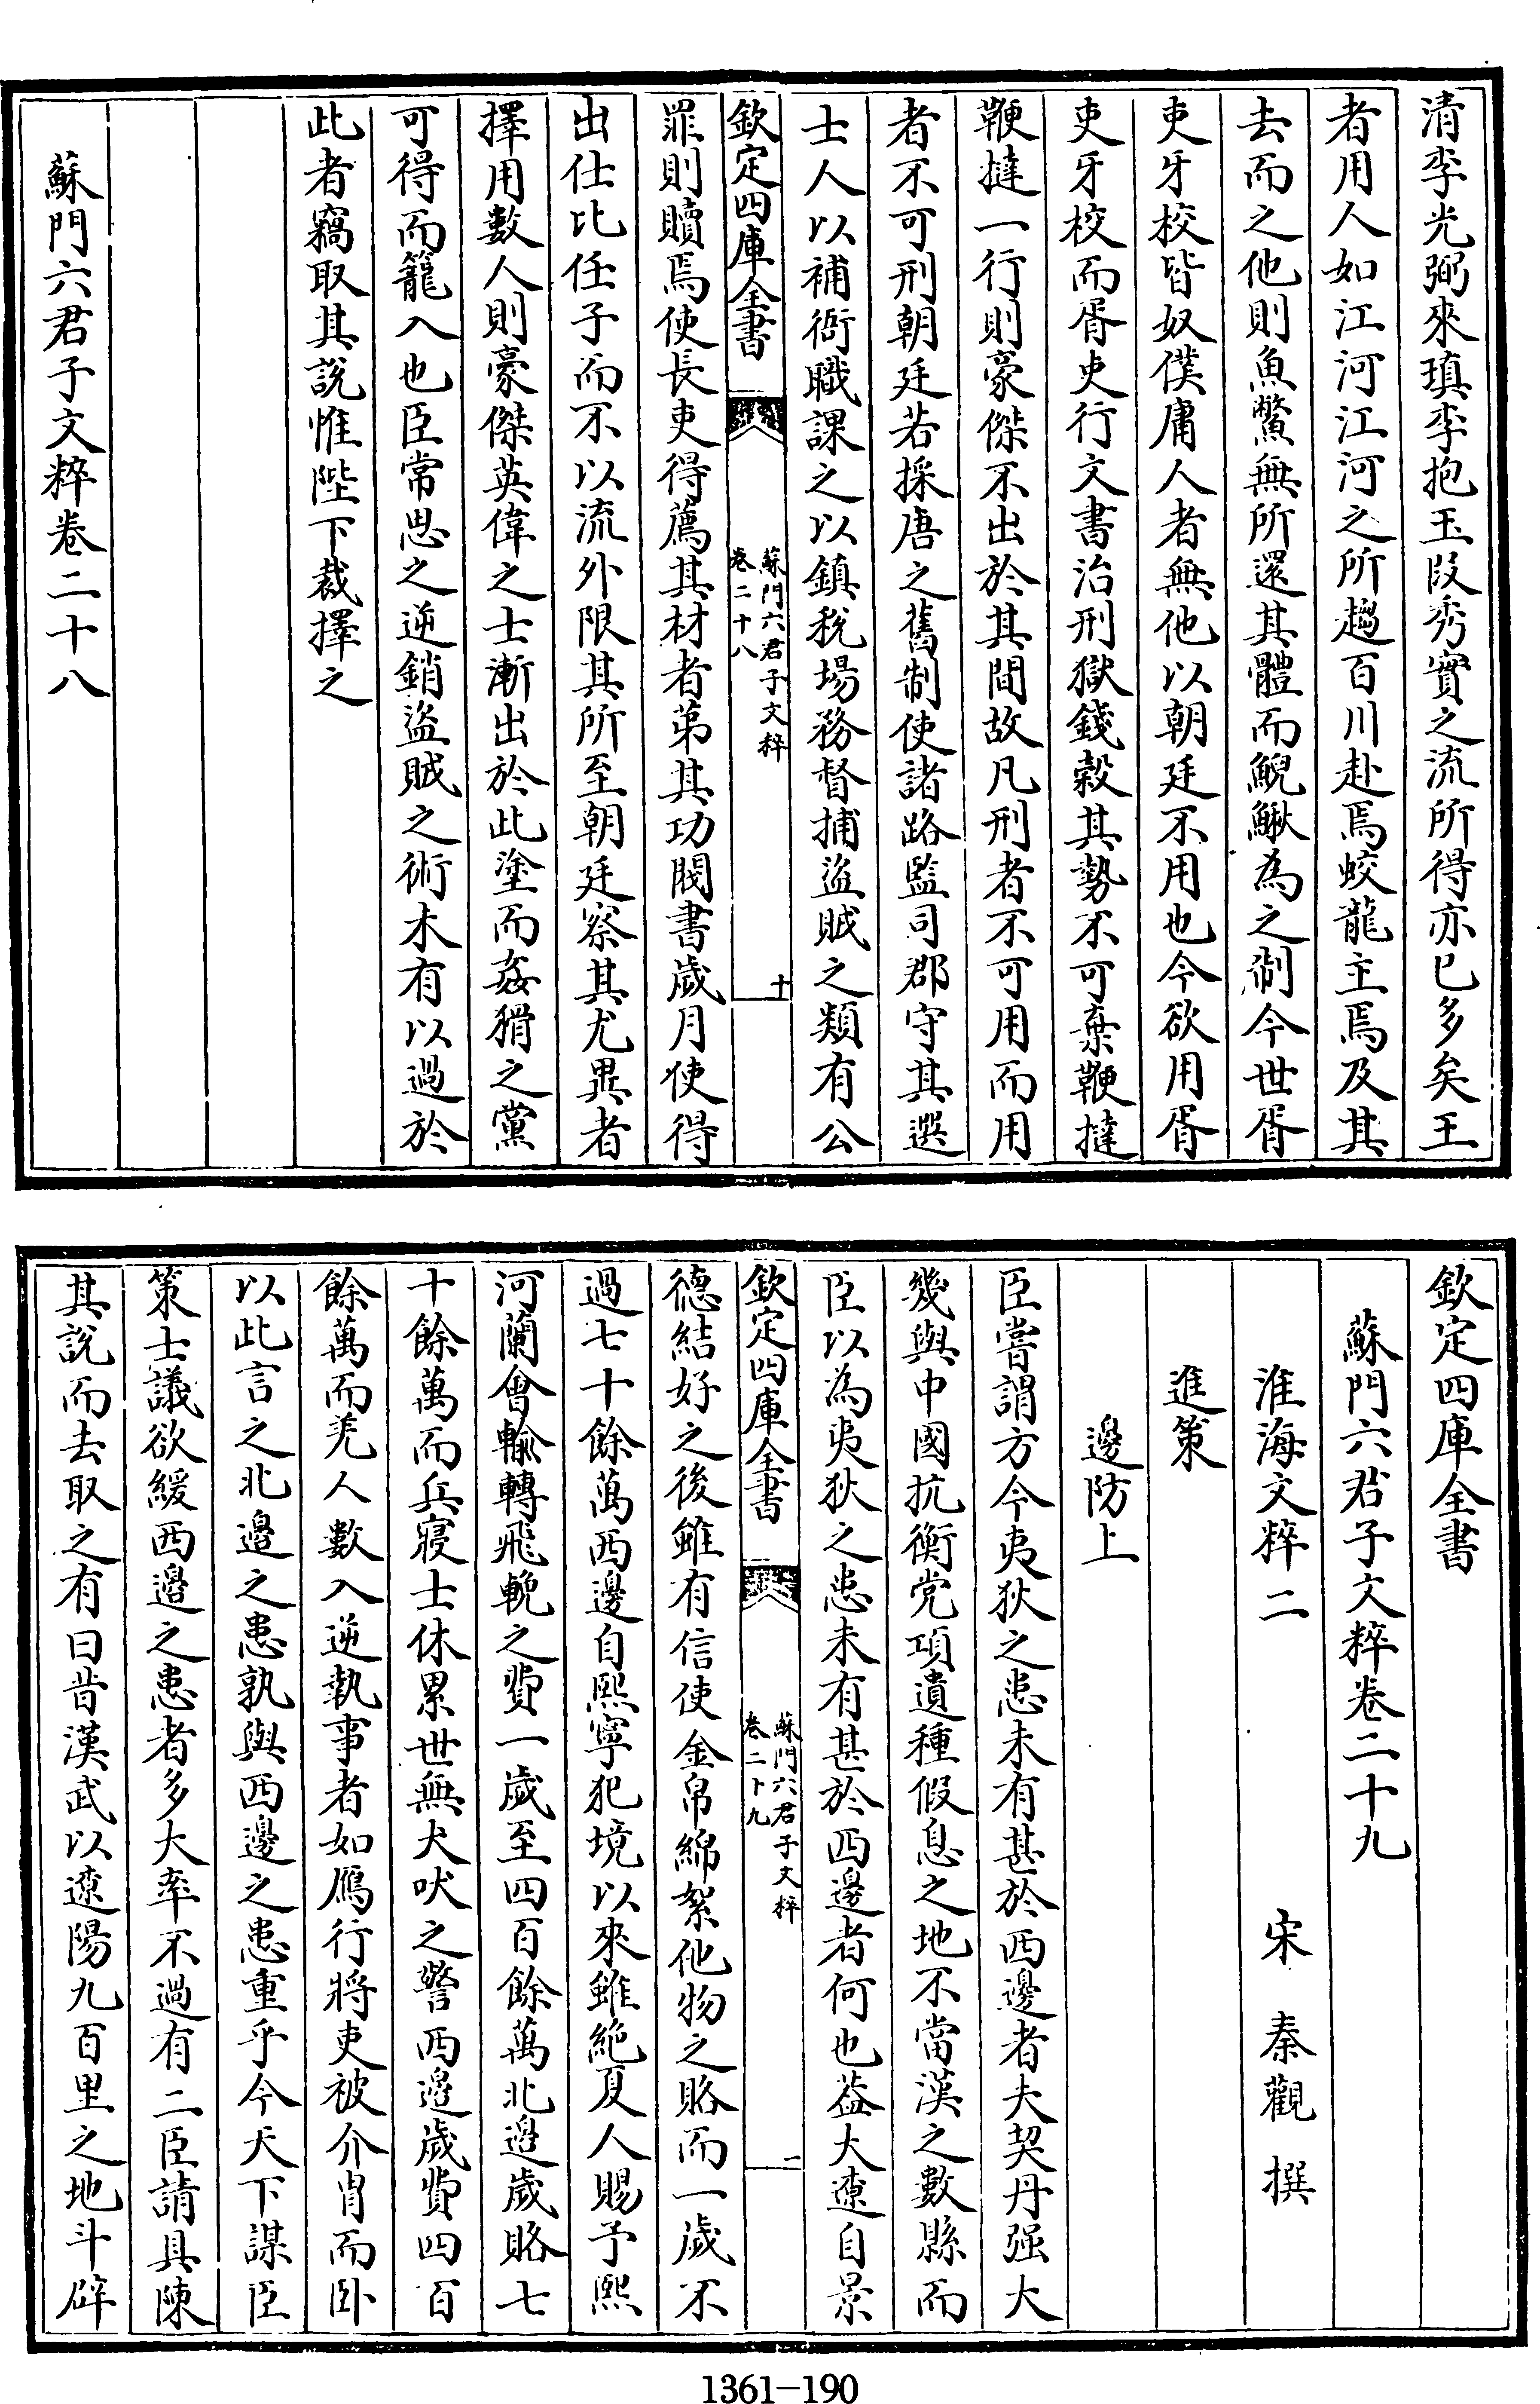 清李光弼來瑱李抱玉段秀實之流所得亦已多矣王
者用人如江河江河之所趨百川赴焉蛟龍主焉及其
去而之他則魚鱉無所還其體而鯢鰍為之制今世胥
吏牙校皆奴僕庸人者無他以朝廷不用也今欲用胥
吏牙校而胥吏行文書治刑獄錢穀其勢不可棄鞭撻
鞭撻一行則豪傑不出於其間故凡刑者不可用而用
者不可刑朝廷若採唐之舊制使諸路監司郡守其選
士人以補衙職課之以鎮稅場務督捕盜賊之類有公
欽定四庫全書
蘇門六君子文粹
卷二十八
十
罪則贖焉使長吏得薦其材者第其功閥書歲月使得
出仕比任子而不以流外限其所至朝廷察其尤異者
擇用數人則豪傑英偉之士漸出於此塗而姦猾之黨
可得而籠入也臣常思之逆銷盜賊之術未有以過於
此者竊取其說惟陛下裁擇之
蘇門六君子文粹卷二十八
欽定四庫全書
蘇門六君子文粹卷二十九
淮海文粹二 宋 秦觀 撰
進策
邊防上
臣嘗謂方今夷狄之患未有甚於西邊者夫契丹强大
幾與中國抗衡党項遺種假息之地不當漢之數縣而
臣以為夷狄之患未有甚於西邊者何也葢大遼自景
欽定四庫全書
蘇門六君子文粹
卷二十九
一
德結好之後雖有信使金帛綿絮他物之賂而一歲不
過七十餘萬西邊自熙寧犯境以來雖絶夏人賜予熙
河蘭會輸轉飛輓之費一歲至四百餘萬北邊歲賂七
十餘萬而兵寢士休累世無犬吠之警西邊歲費四百
餘萬而羌人數入逆執事者如鴈行將吏被介胄而卧
以此言之北邊之患孰與西邊之患重乎今天下謀臣
策士議欲緩西邊之患者多大率不過有二臣請具陳
其說而去取之有曰昔漢武以遼陽九百里之地斗辟
1361-190